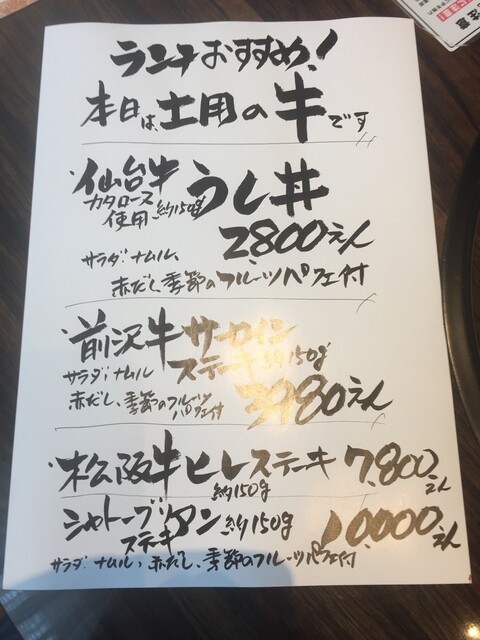 ランチおすすめ!
本日は、土用の牛です
・仙台牛うし丼
カタロース使用 約150g
2,800えん
サラダ、ナムル、
赤だし、季節のフルーツパフェ付
・前沢牛サーロイン
ステーキ 約150g
サラダ、ナムル
赤だし、季節のフルーツパフェ付
3980えん
・松阪牛ヒレステーキ 7,800えん
約150g
シャトーブリアンステーキ 約150g 10,000えん
サラダ、ナムル、赤だし、季節のフルーツパフェ付
注意